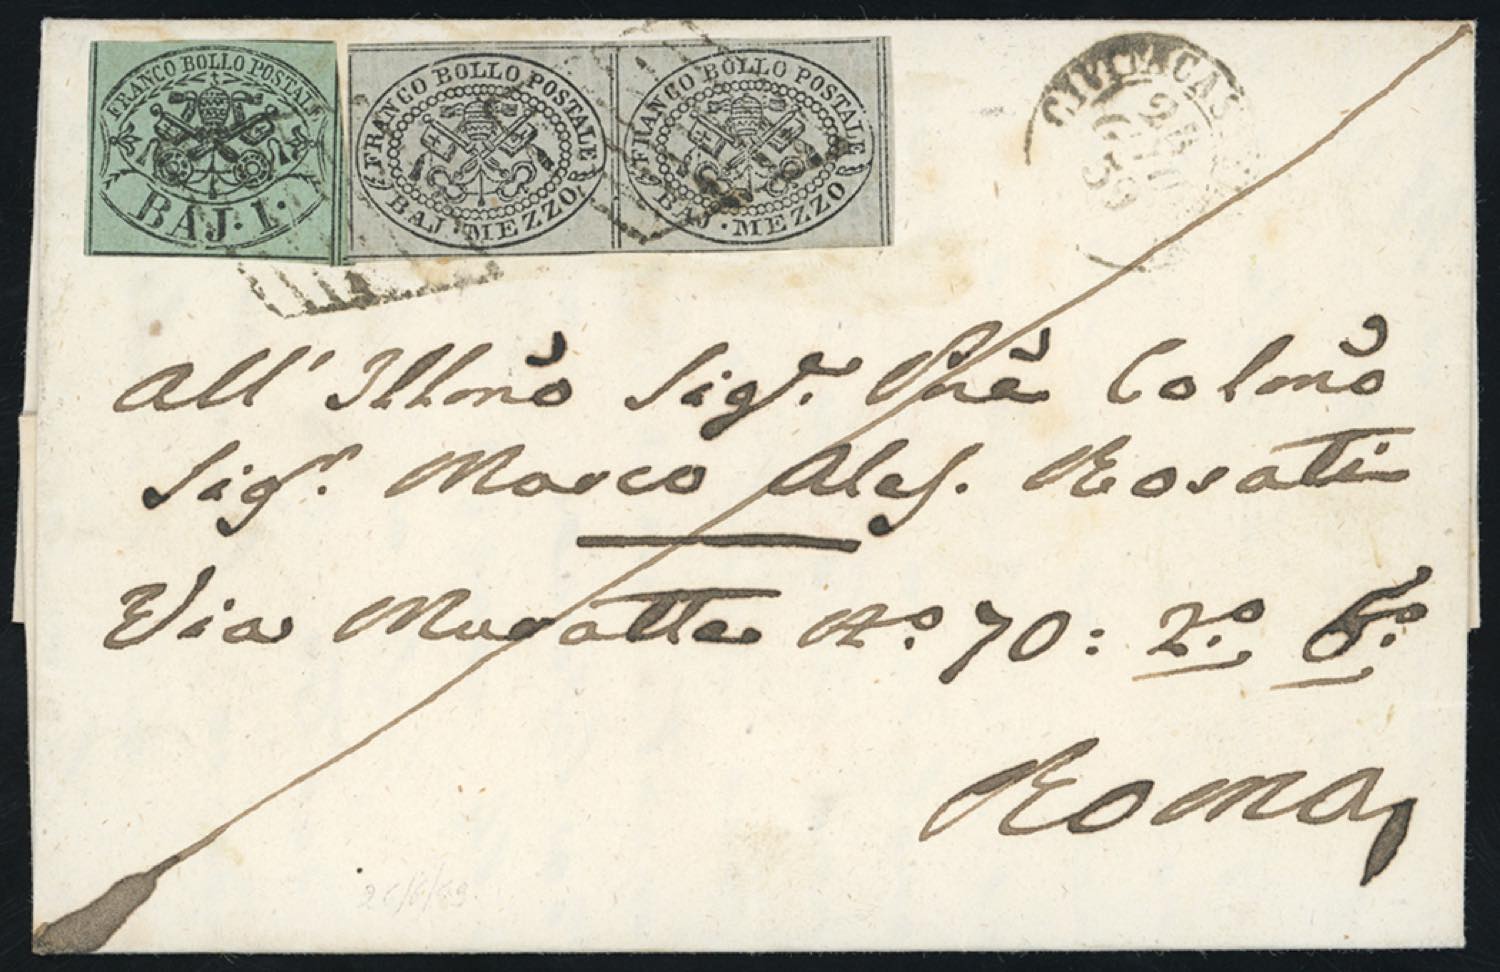 FRANCO BOLLO POSTALE
BAJ. 1.
FRANCO BOLLO POSTALE
BAJ. MEZZO
FRANCO BOLLO POSTALE
BAJ. MEZZO
CIVITA CAS
59
All' Illmõ Sigr. Colmõ
Sigr. Marco Ales. Rosati
Via Muratte No. 70: 2.o
Roma,